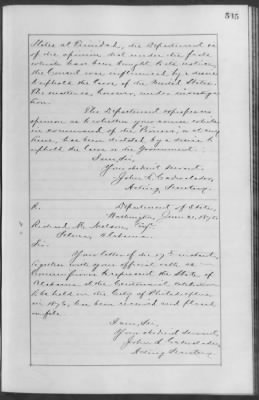 515
States at Trinidad, the Department is
of the opinion that under the facts
which have been brought to its notice,
the Consul was influenced by a desire
to uphold the laws of the United States.
The matter is, however, under investiga-
tion.
The Department expresses no
opinion as to whether your course whilst
in command of the
time, has been dictated by a desire to
uphold the laws or the Government.
I am, Sir,
Your obedient servant,
John L. Cadwalader,
Acting Secretary.
Department of State,
Washington, June 21, 1875.
Richard M. Nelson, Esq.
Selma, Alabama.
Sir:
Your letter of the 17th instant,
together with your official oath as
Commissioner to represent the State of
Alabama at the Centennial exhibition
to be held in the City of Philadelphia
in 1876, has been received and placed
on file.
I am, Sir,
Your obedient servant,
John L. Cadwalader,
Acting Secretary.